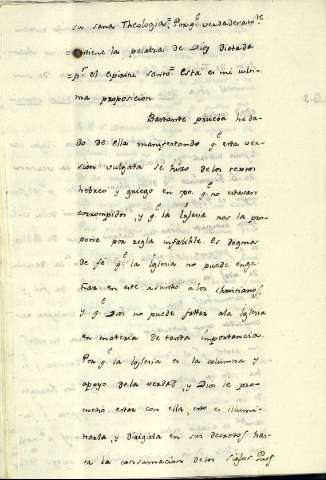 su sana Theologia: Porq.e verdaderam.te
contiene la palabra de Dios dictada
p.r el espiritu santo. Esta es mi ulti-
ma proposicion.
Bastante prueva he da-
do de ella manifestando q.e esta ver-
sion vulgata se hizo de los textos
hebreo, y griego en tpo. q.e no estavan
corrompidos, y q.e la Iglesia nos la pro-
pone por regla infalible. Es dogma
de fé q.e la Iglesia no puede enga-
ñar en este asunto a los christianos,
y q.e Dios no puede faltar ala Iglesia
en materia de tanta importancia.
Porq.e la Iglesia es la columna y
apoyo dela verdad, y Dios le pro-
metió estar con ella, esto es illumi-
narla, y dirigirla en sus decretos has-
ta la consumacion delos siglos. Pues